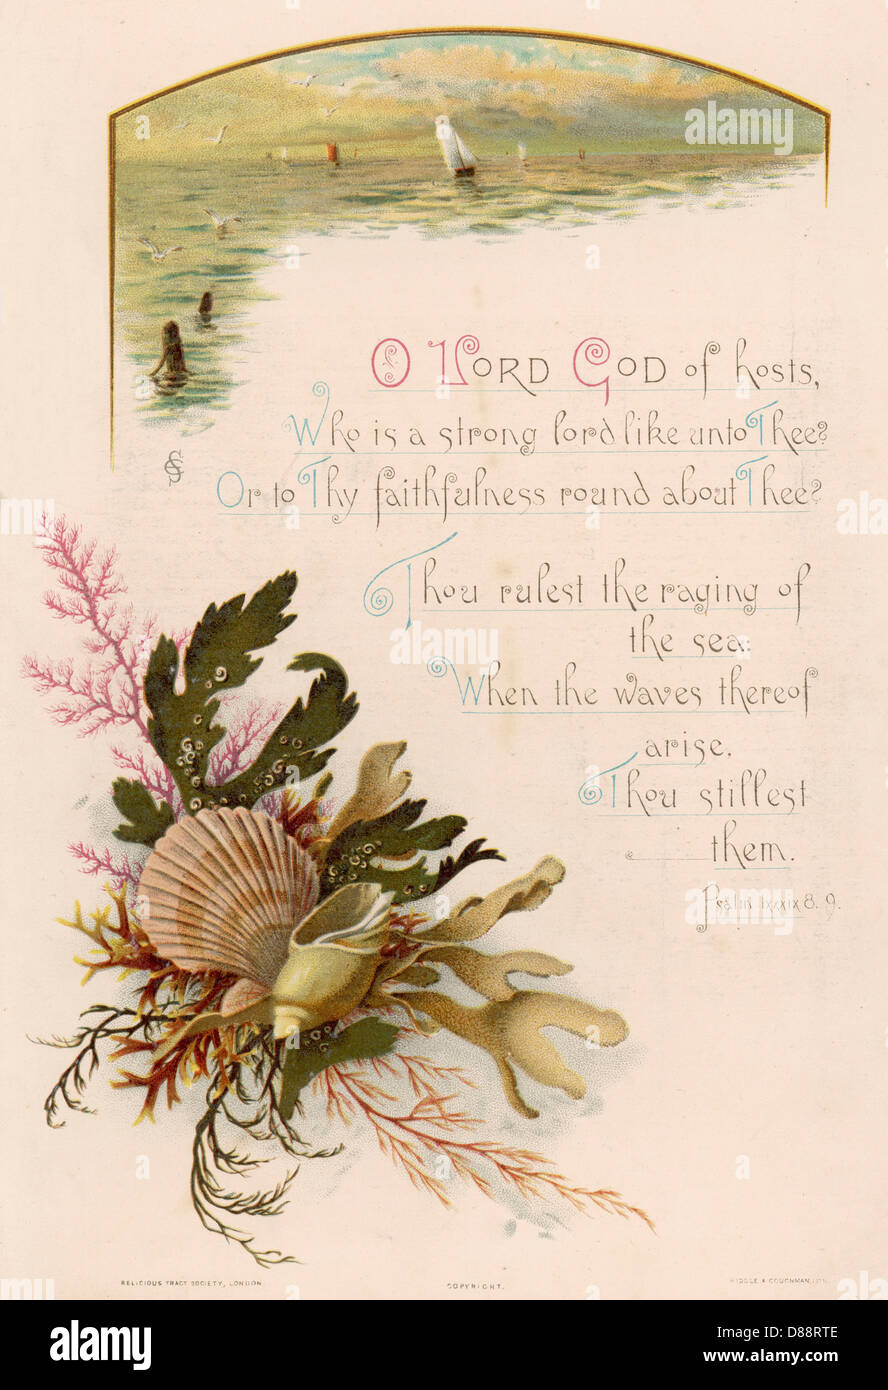 O LORD GOD of hosts,
Who is a strong lord like unto Thee?
Or to Thy faithfulness round about Thee?
Thou rulest the raging of
the sea:
When the waves thereof
arise,
Thou stillest
them.
Psalm lxxxix 8. 9.
RELIGIOUS TRACT SOCIETY, LONDON
COPYRIGHT.
RIDDLE & COUCHMAN, LON
alamy
a
alamy stock photo
D88RTE
www.alamy.com